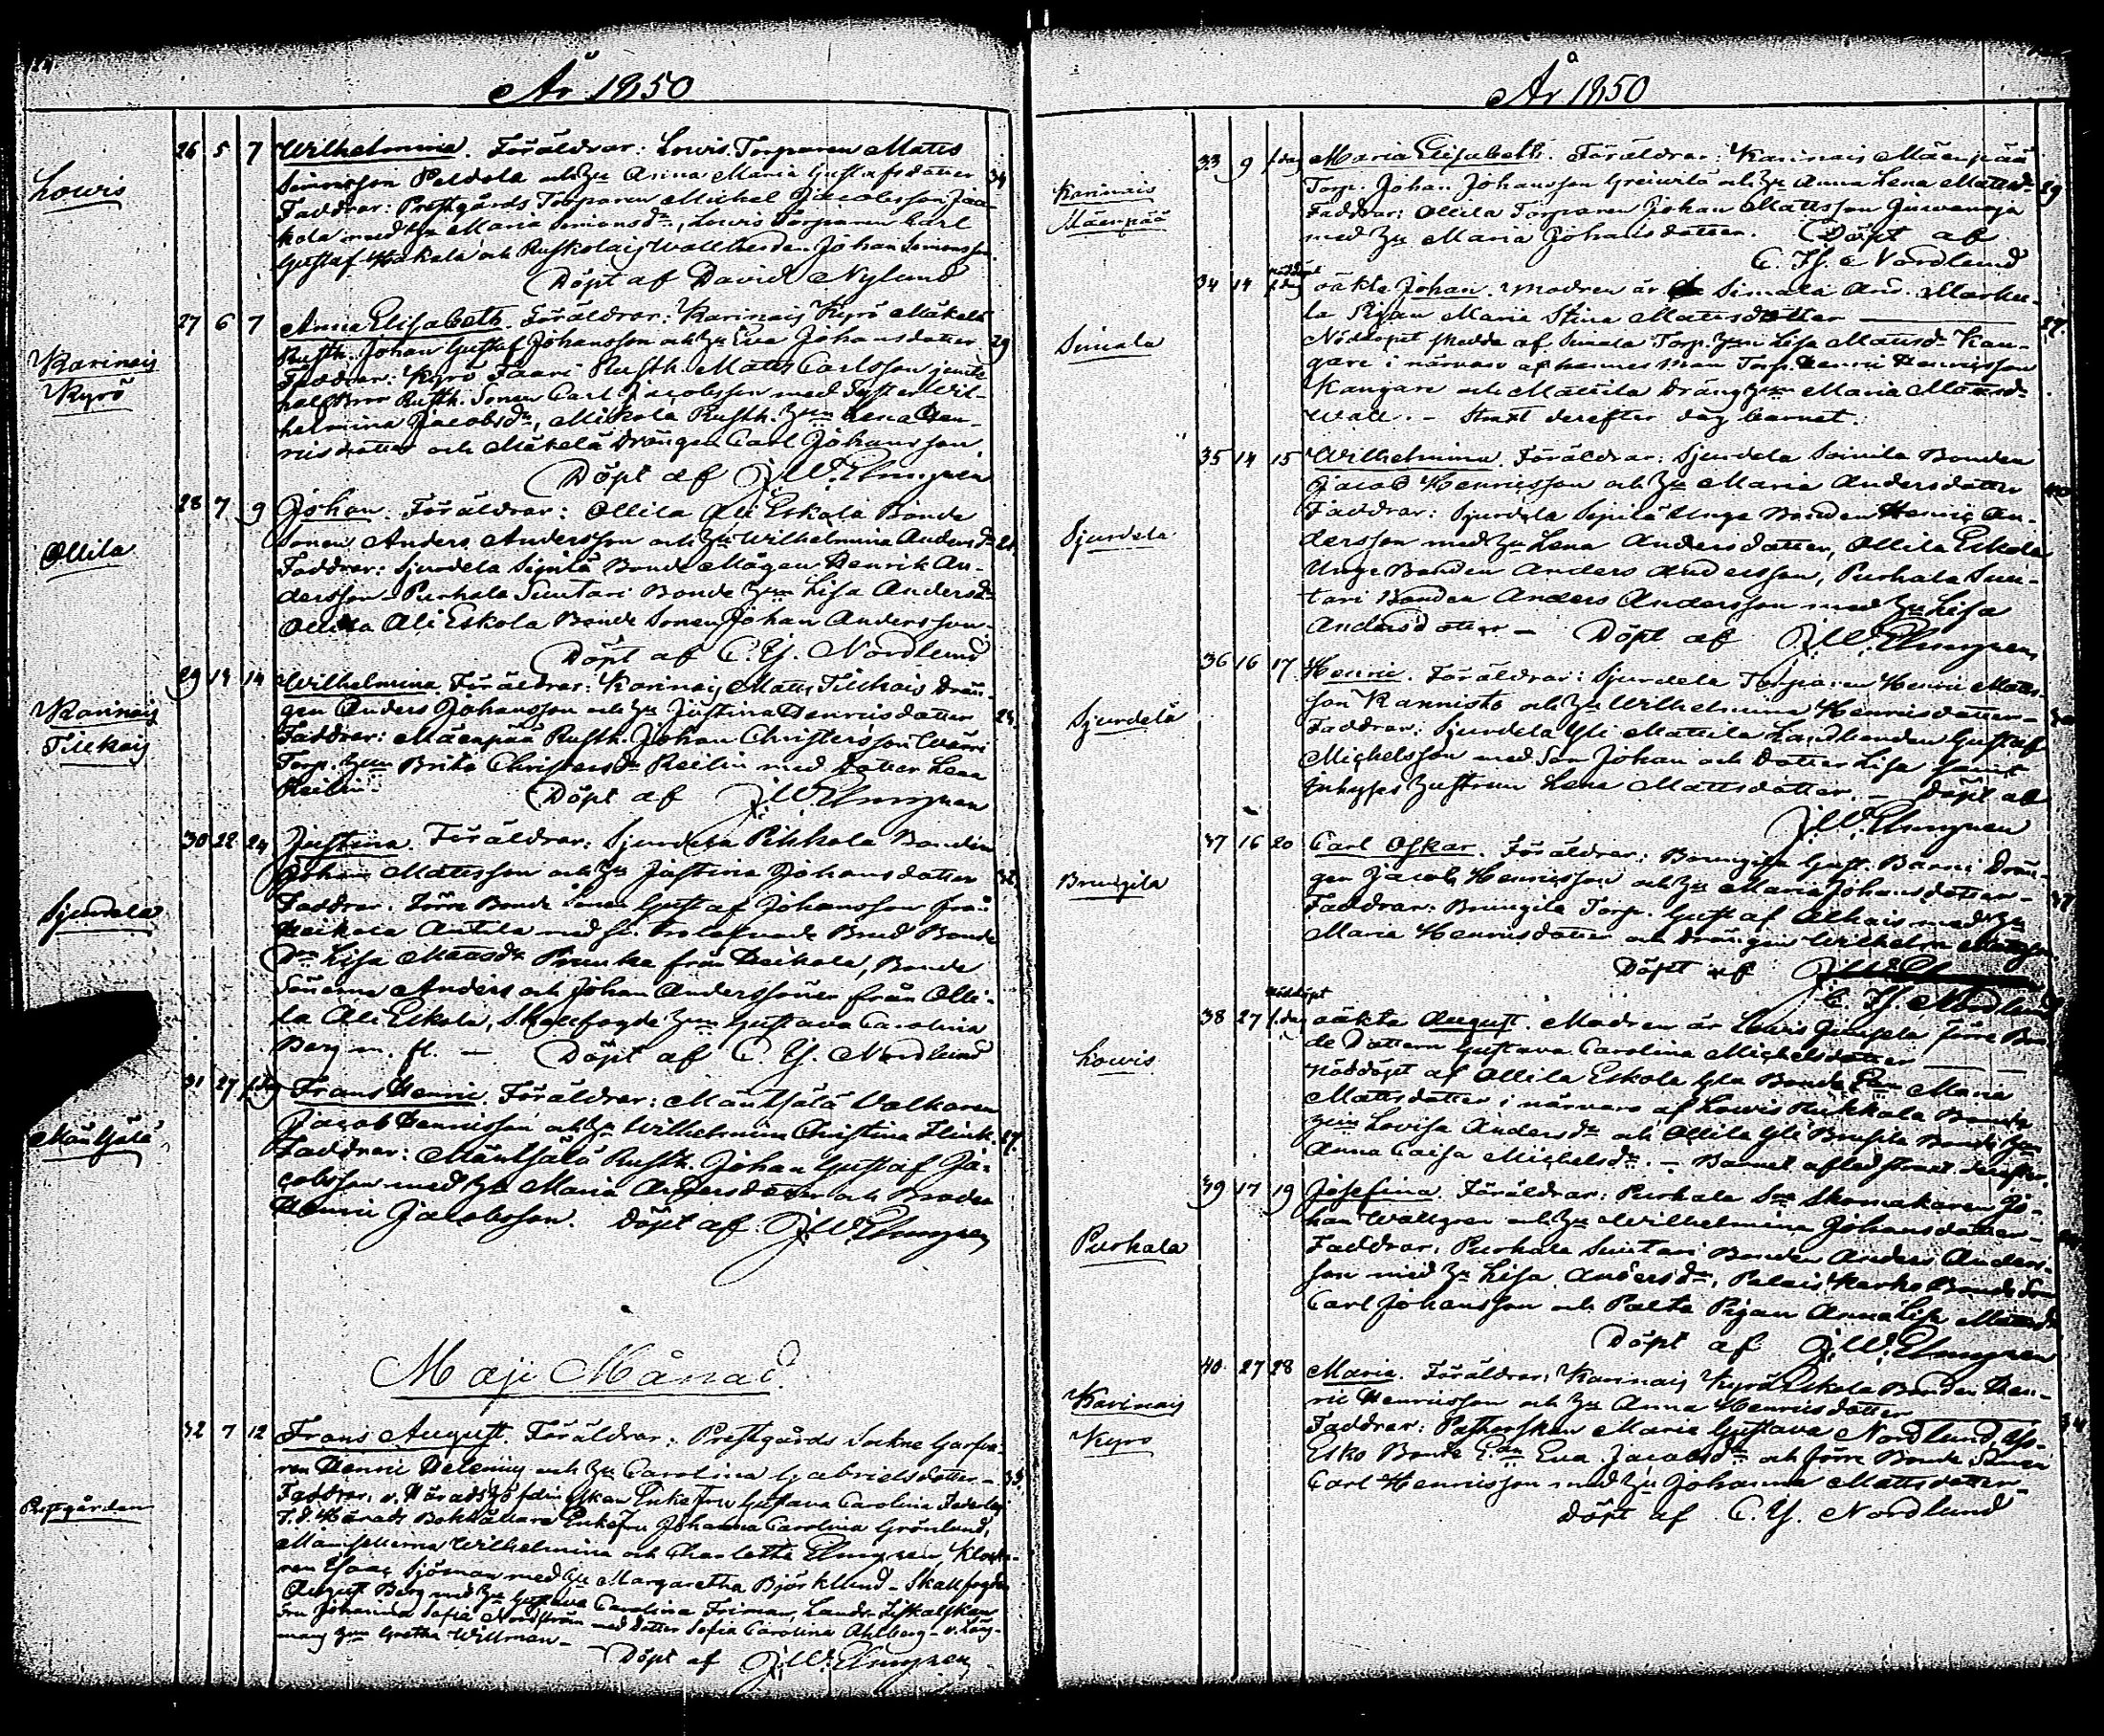 År 1850
Lowis
26 5 7 Wilhelmina. Föräldrar: Lowis Torparen Matts
Simonsson Peldola och Hu Anna Maria Gustafsdotter 34
Faddrar: Prestgårds Torparen Michel Jacobsson Jaa-
kola med Hu Maria Simonsdr, Lowis Torparen Carl
Gustaf Hakala och Ruskolais Wallherden Johan Simonsson.
Döpt af David Nylund
Karinais
Kyrö
27 6 7 Anna Elisabeth. Föräldrar: Karinais Kyrö Mäkelä
Rusth. Johan Gustaf Johansson och Hu Eva Johansdotter 29
Faddrar: Kyrö Faari Rusth. Matts Carlsson jemte
halfbror Rusth. Sonen Carl Jacobsson med Syster Wil-
helmina Jacobsdr, Mikola Rusth. Hun Lena Hen-
ricsdotter och Mäkelä Drängen Carl Johansson.
Döpt af J.W. Elmgren
Ollila
28 7 9 Johan. Föräldrar: Ollila Ali Eskola Bonde
Sonen Anders Andersson och Hu Wilhelmina Andersdr 21.
Faddrar: Sjurdela Sipilä Bonde Mågen Henrik An-
dersson - Purhala Suutari Bonde Hun Lisa Andersdr
Ollila Ali Eskola Bonde Sonen Johan Andersson.
Döpt af C. Hj. Nordlund
Karinais
Tiükais
29 14 14 Wilhelmina. Föräldrar: Karinais Matts Tiukais Drän-
gen Anders Johansson och Hu Justina Henricsdotter 24.
Faddrar: Mäenpää Rusth. Johan Christersson
Torp. Hun Brita Christersdr Reilin med Dotter Lena
Reilin - Döpt af J.W. Elmgren
Sjurdela
30 22 24 Justina. Föräldrar: Sjurdela Pikkala Bonden
Johan Mattsson och Hu Justina Johansdotter 32.
Faddrar: Förre Bonde Sonen Gustaf Johansson från
Heikola Anttila med sin trolofwade Brud Bonde
Dn Lisa Mattsdr Prunka från Heikola, Bonde
Sönerna Anders och Johan Anderssöner från Olli-
la Ali Eskola, Skallfogde Hun Gustava Carolina
Berg m. fl. - Döpt af C. Hj. Nordlund
Mäntsälä
31 27 s.dag Frans Henric. Föräldrar: Mäntsälä Volkaren
Jacob Henricsson och Hu Wilhelmina Christina Flink. 27.
Faddrar: Mäntsälä Rusth. Johan Gustaf Ja-
cobsson med Hu Maria Andersdotter och Broder
Henric Jacobsson. Döpt af J.W. Elmgren
Maji Månad.
Prestgården
32 7 12 Frans August. Föräldrar: Prestgårds Sockne Garfwa-
ren Henric Helenius och Hu Carolina Gabrielsdotter - 33.
Faddrar: v. Häradshöfdinskan Enkefru Gustava Carolina
T.d. Härads Bokhållare Enkefru Johanna Carolina Grönlund,
Mamsellerna Wilhelmina och Charlotta Elmgren, Klocka-
ren Isaac Sjöman med Hu Margaretha Björklund - Skallfogden
August Berg med Hu Gustava Carolina Friman, Lands Fiskalskan
Johanna Sofia Nordström med Dotter Sofia Carolina Ahlberg - v. Läns-
mans Hun Gretha Willman -
Döpt af J.W. Elmgren
År 1850
Karinais
Mäenpää
33 9 s.dag Maria Elisabeth. Föräldrar: Karinais Mäenpää
Torp. Johan Johansson Greiwilä och Hu Anna Lena Mattsdr 29
Faddrar: Ollila Torparen Johan Mattsson Juwansoja
med Hu Maria Johansdotter. Döpt af
C. Hj. Nordlund
Simala
34 14 nöddöpt s.dag oäkta Johan. Modren är Simala And. Marku-
la Pigan Maria Stina Mattsdotter 27.
Nöddopet skedde af Simala Torp. Hun Lisa Mattsdr Kan-
gare i närvaro af hennes man Torp. Henric Henricsson
Kangare och Mattila Dräng Hun Maria Mattsdr
Wall. - Straxt derefter dog barnet.
Sjurdela
35 14 15 Wilhelmina. Föräldrar: Sjurdela Soinila Bonden
Jacob Henricsson och Hu Maria Andersdotter 40
Faddrar: Sjurdela Sipilä Unge Bonden Henric An-
dersson med Hu Lena Andersdotter, Ollila Eskola
Unge Bonden Anders Andersson, Purhala Suu-
tari Bonden Anders Andersson med Hu Lisa
Andersdotter - Döpt af J.W. Elmgren
Sjurdelä
36 16 17 Henric. Föräldrar: Sjurdela Torparen Henric Matts-
son Kannisto och Hu Wilhelmina Henricsdotter -
Faddrar: Sjurdela Yli Mattila Landbonden Gustaf
Michelsson med Son Johan och Dotter Lisa samt
Inhyses Hustrun Lena Mattsdotter. - Döpt af
J.W. Elmgren
Brungila
37 16 20 Carl Oskar. Föräldrar: Brungila Gust. Bärni Drän-
gen Jacob Henricsson och Hu Maria Johansdotter - 37
Faddrar: Brungila Torp. Gustaf Alhais med Hu
Maria Henricsdotter och Drängen Wilhelm
Döpt af J.W. Elmgren
C. Hj. Nordlund
Lowis
38 27 Nöddöpt s.dag oäkta August. Modren är Lowis Junsela förre Bon-
de Dottern Gustava Carolina Michelsdotter
Nöddöpt af Ollila Eskola Gla Bonde Enk. Maria
Mattsdotter i närvaro af Lowis Pukkala Bonde
Hun Lovisa Andersdr och Ollila Yli Brusila Bonde Hun
Anna Caisa Michelsdr. - Barnet afled straxt derefter.
Purhala
39 17 19 Josefina. Föräldrar: Purhala Sne Skomakaren Jo-
han Wallgren och Hu Wilhelmina Johansdotter -
Faddrar: Purhala Suutari Bonden Anders Anders-
son med Hu Lisa Andersdr, Palais Karho Bonde Son
Carl Johansson och Palta Pigan Anna Lisa Mattsdr
Döpt af J.W. Elmgren
Karinais
Kyrö
40. 27 28 Maria. Föräldrar: Karinais Kyrö Eskola Bonden Hen-
ric Henricsson och Hu Anna Henricsdotter 34
Faddrar: Pastorskan Maria Gustava Nordlund,
Esko Bonde E:an Eva Jacobsdr och förre Bonde Sonen
Carl Henricsson med Hu Johanna Mattsdotter -
Döpt af C. Hj. Nordlund